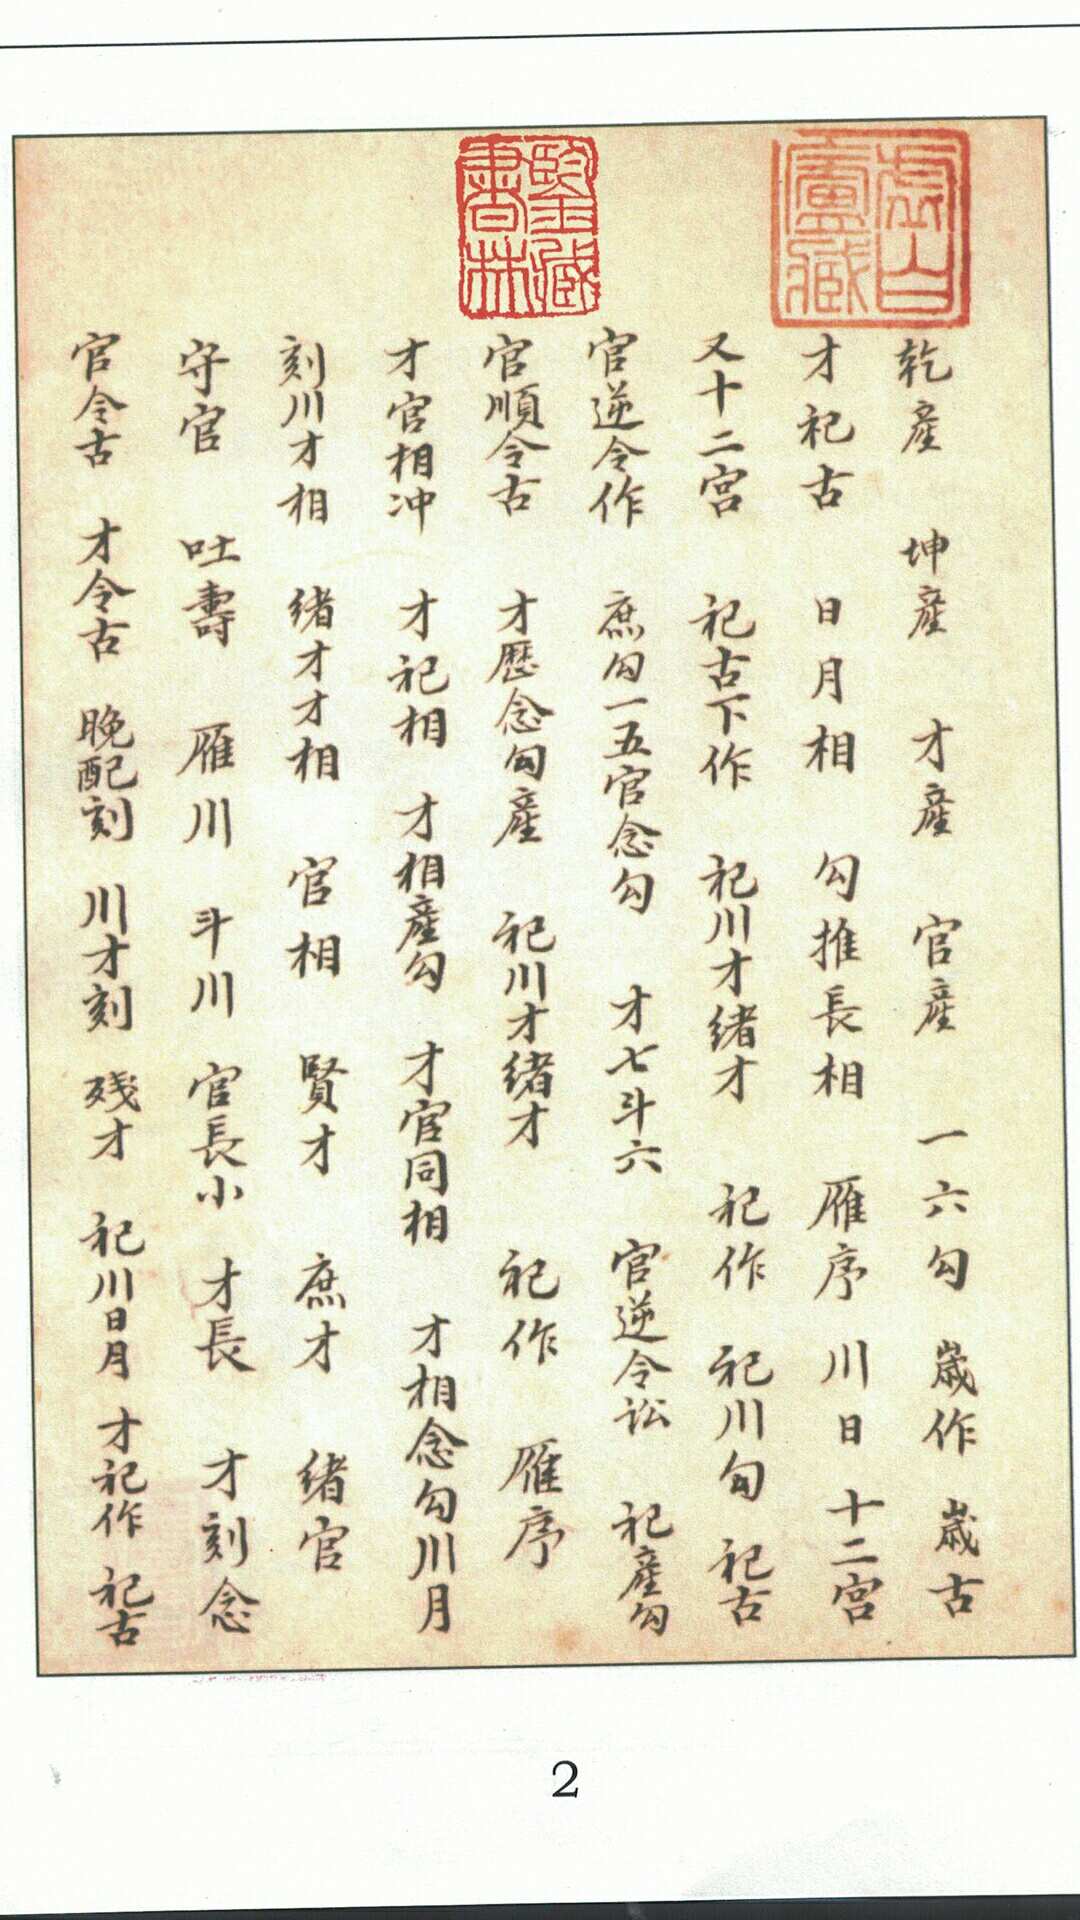 虛白廬藏
堅藏書林
乾產 坤產 才產 官產 一六勾 歲作 歲古
才祀古 日月相 勾推長相 雁序 川日 十二宮
又十二宮 祀古下作 祀川才緒才 祀作 祀川旬 祀古
官逆令作 庶勾一五官念勾 才七斗六 官逆令訟 祀產勾
官順令古 才歷念勾產 祀川才緒才 祀作 雁序
才官相冲 才祀相 才相產勾 才官同相 才相念勾川月
刻川才相 緒才才相 官相 賢才 庶才 緒官
守官 吐壽 雁川 斗川 官長小 才長 才刻念
官令古 才令古 晚配刻 川才刻 残才 祀川日月 才祀作 祀古
2